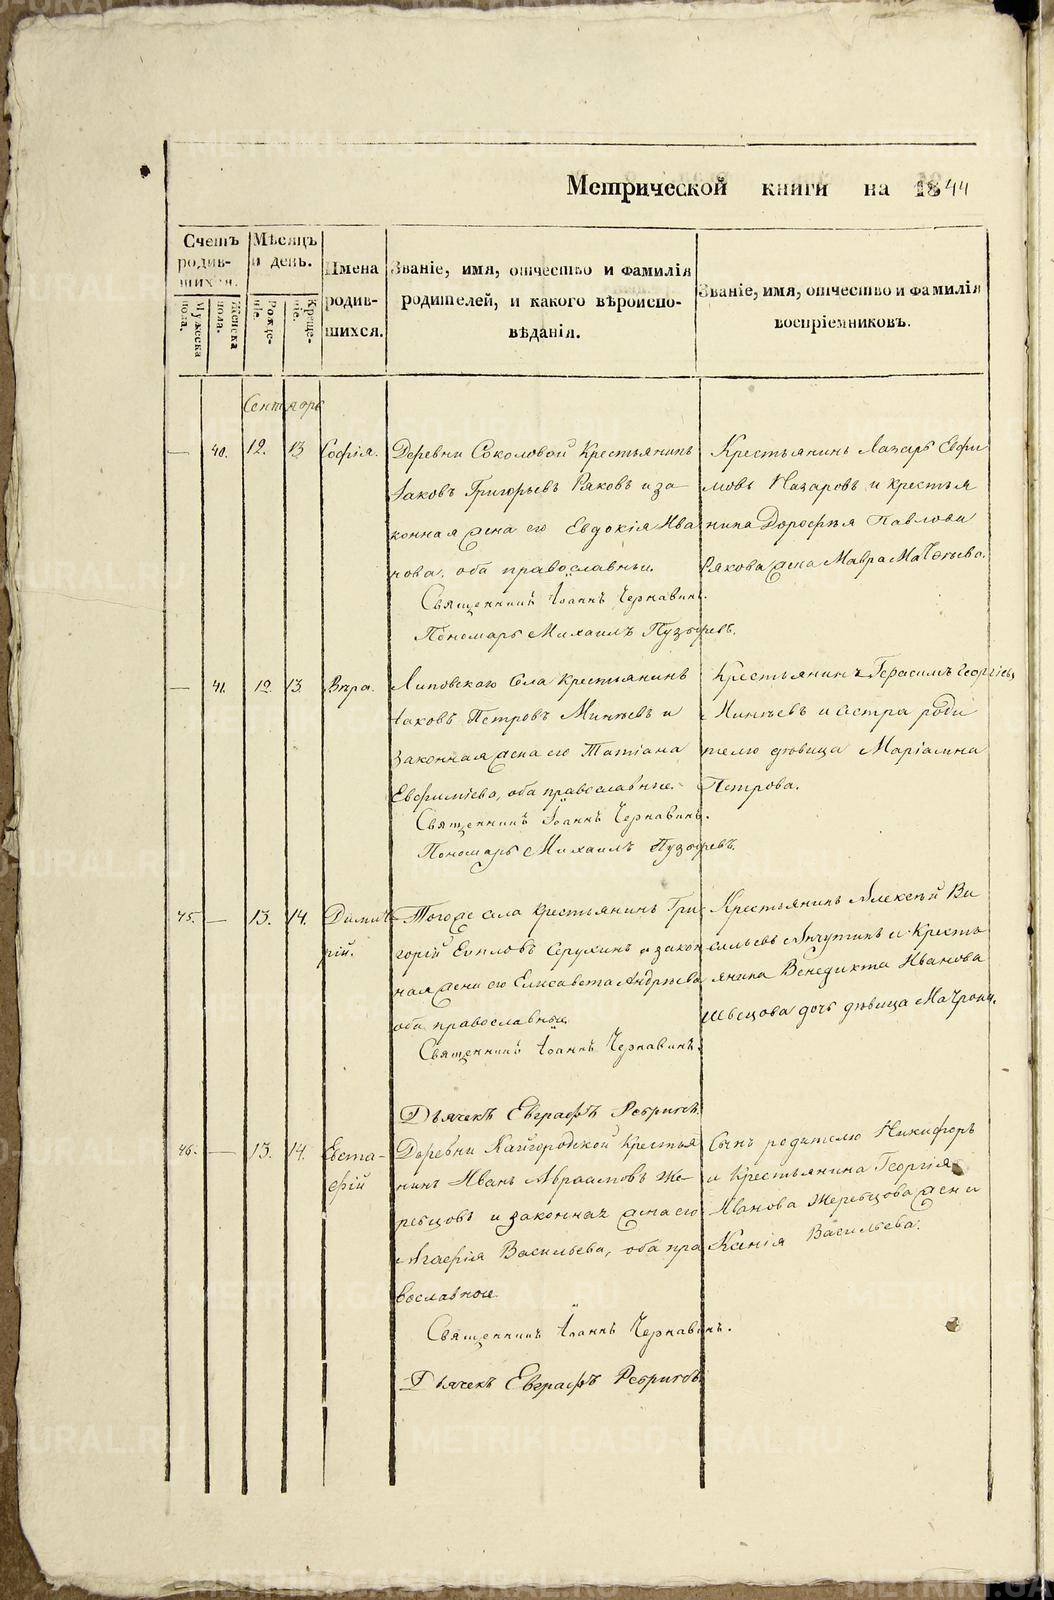 Метрической книги на 1844
Счетъ родив-шихся.
Мужеска пола.
Женска пола.
Мѣсяцъ и день.
Рожде-ніе.
Креще-ніе.
Имена родив-шихся.
Званіе, имя, отчество и фамилія
родителей, и какого вѣроиспо-
вѣданія.
Званіе, имя, отчество и фамилія
воспріемниковъ.
Сентябрь
— 40. 12. 13 Софія.
Деревни Соколовой Крестьянинъ
Іаковъ Григорьевъ Ряковъ и за-
конная жена его Евдокія Ива
нова, оба православныи.
Священникъ Іоаннъ Чернавинъ.
Пономарь Михаилъ Пузыревъ.
Крестьянинъ Лазарь Евфи
мовъ Назаровъ и крестья
нина Дорофея Павлова
Рякова жена Мавра Матѳѣева.
— 41. 12. 13 Вѣра.
Липовскаго Села крестьянинъ
Іаковъ Петровъ Минѣевъ и
законная жена его Татіана
Евфиміева, оба православные.
Священникъ Іоаннъ Чернавинъ.
Пономарь Михаилъ Пузыревъ.
Крестьянинъ Герасимъ Георгіевъ
Минѣевъ и сестра роди
телю дѣвица Маріамна
Петрова.
45. — 13. 14. Димит
рій.
Тогоже села крестьянинъ Гри
горій Евпловъ Серухинъ и закон
ная жена его Елисавета Андрѣева
оба православные
Священникъ Іоаннъ Чернавинъ.
Дьячекъ Евграфъ Ребринъ
Крестьянинъ Алексѣй Ва
сильевъ Анчутинъ и Кресть
янина Венедикта Иванова
Швецова дочь дѣвица Матрона.
46. — 13. 14. Евста-
фій
Деревни Кайгородской Крестья
нинъ Иванъ Авраамовъ Же-
ребцовъ и законная жена его
Агафія Васильева, оба пра
вославные
Священникъ Іоаннъ Чернавинъ.
Дьячекъ Евграфъ Ребринъ
Сынъ родителю Никифоръ
и Крестьянина Георгія
Иванова Жеребцова жена
Ксенія Васильева.
METRIKI.GASO-URAL.RU